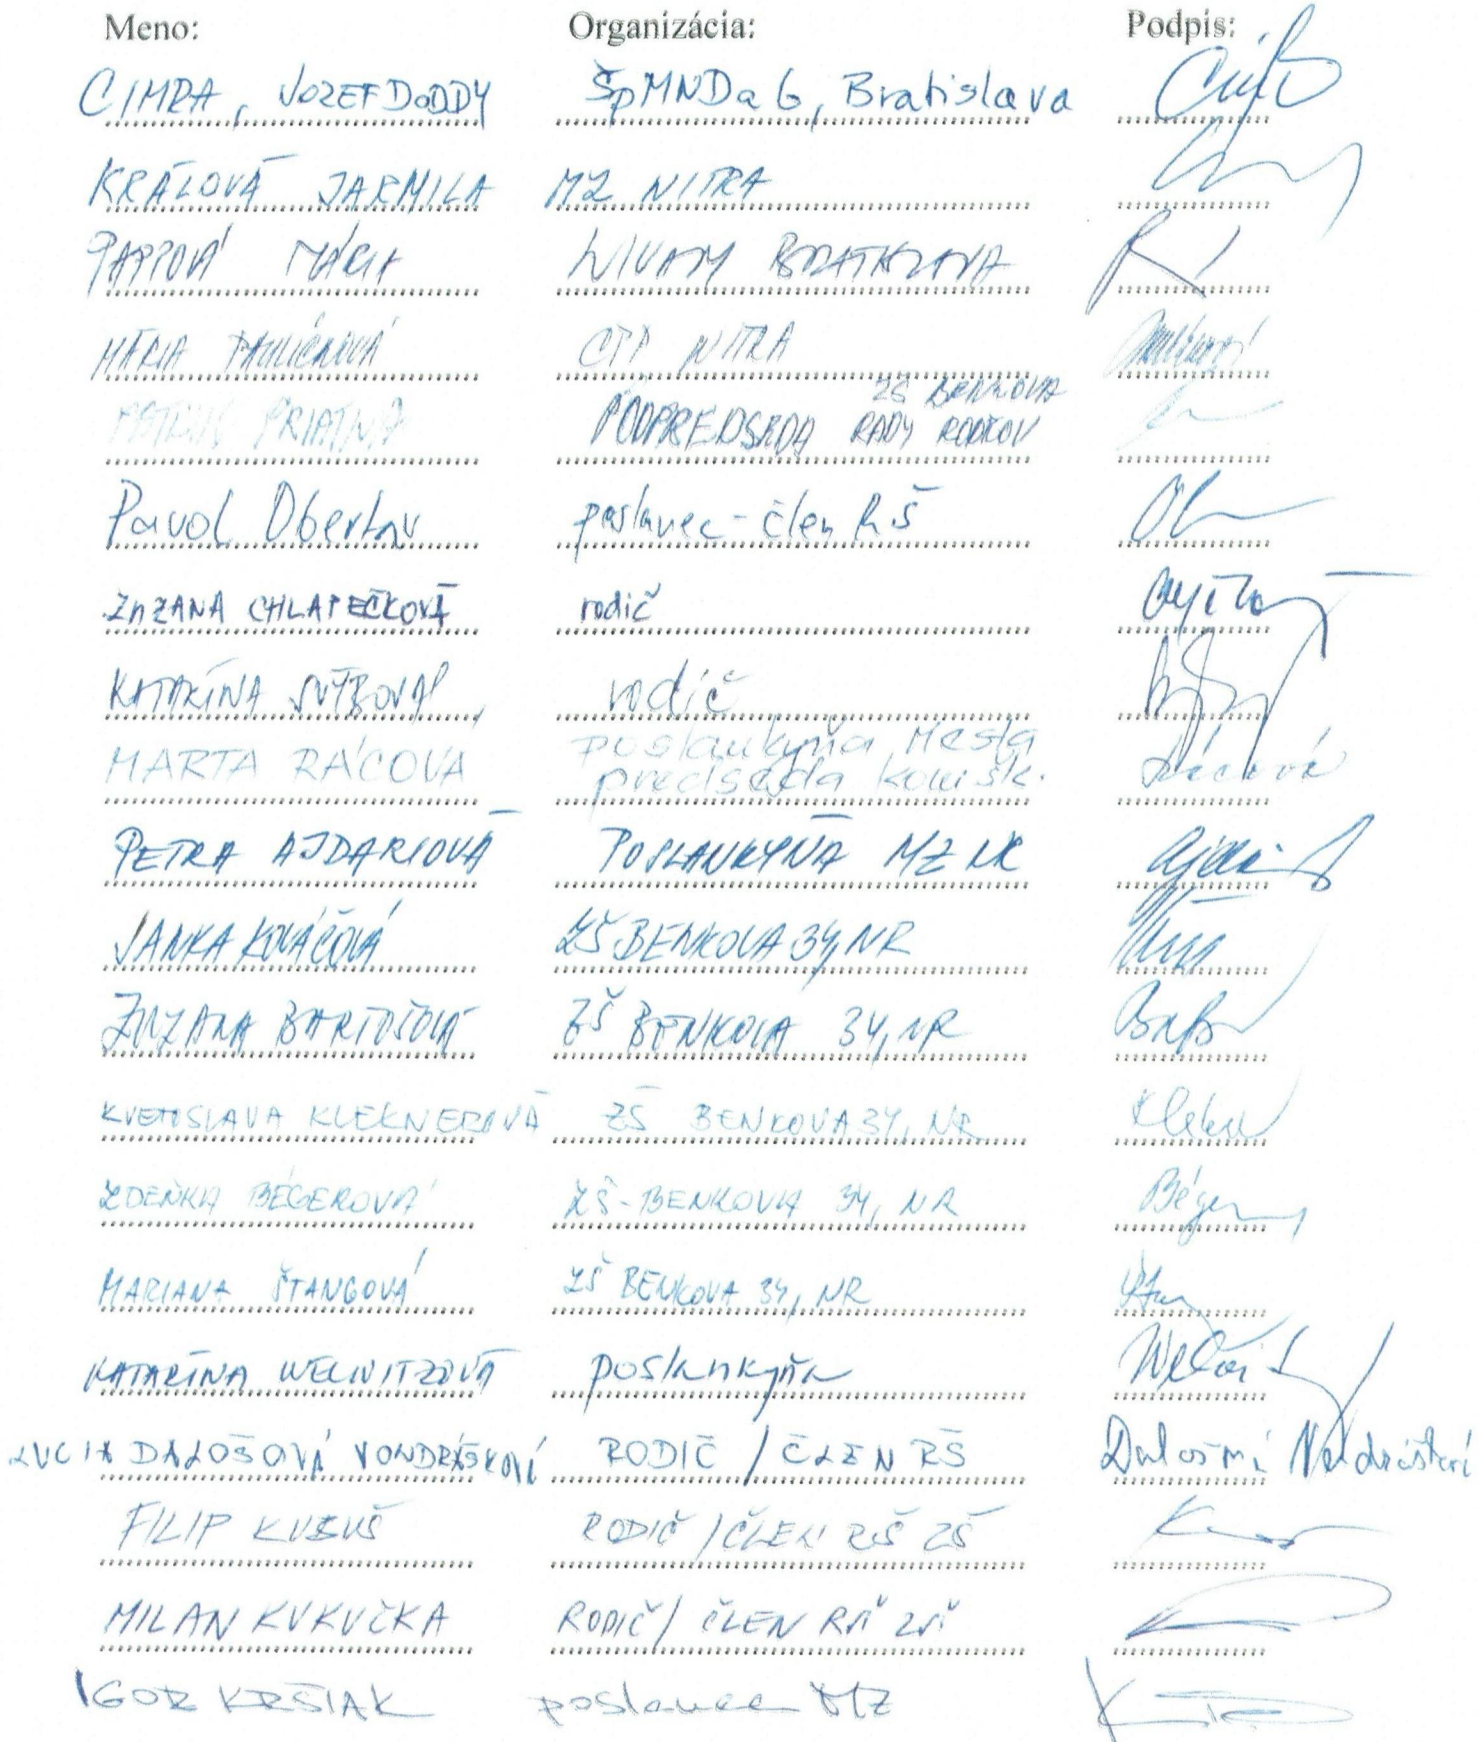 Meno: Organizácia: Podpis:
CIMRA, JOZEF DODDY ŠpMNDaG, Bratislava
KRÁĽOVÁ JARMILA MZ NITRA
PAPPOVÁ MÁRIA BRATISLAVA
MÁRIA PAULIČKOVÁ NITRA
ZŠ BENKOVA
PRIATKA PODPREDSEDA RADY RODIČOV
Pavol Obertáv poslanec - člen RŠ
ZUZANA CHLAPEČKOVÁ rodič
KATARÍNA rodič
poslankyňa Mesta
MARTA RÁCOVÁ predseda komišk. Rácová
PETRA AJDARIOVÁ POSLANKYŇA MZ NR
JANKA KOVÁČOVÁ ZŠ BENKOVA 34, NR
ZUZANA BARTOŠOVÁ ZŠ BENKOVA 34, NR
KVETOSLAVA KLEKNEROVÁ ZŠ BENKOVA 34, NR
ZDENKA BÉGEROVÁ ZŠ - BENKOVA 34, NR
MARIANA ŠTANGOVÁ ZŠ BENKOVA 34, NR
KATARÍNA WELNITZOVÁ poslankyňa
LUCIA DALOŠOVÁ VONDRÁŠKOVÁ RODIČ / ČLEN RŠ
FILIP KUBUŠ RODIČ / ČLEN RŠ ZŠ
MILAN KUKUČKA RODIČ / ČLEN RŠ ZŠ
IGOR KRŠIAK poslanec MZ